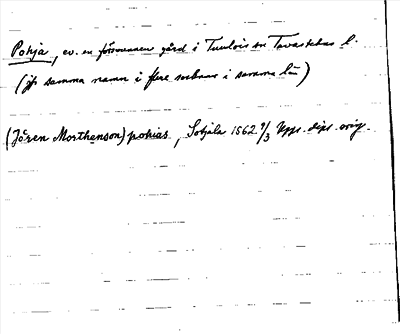 Pohja, ev. en försvunnen gård i Tuulois sn Tavastehus l.
(jfr samma namn i flere socknar i samma län)
(Jören Morthenson) pohias, Sotjala 1562 9/3 Upps. dipl. orig.